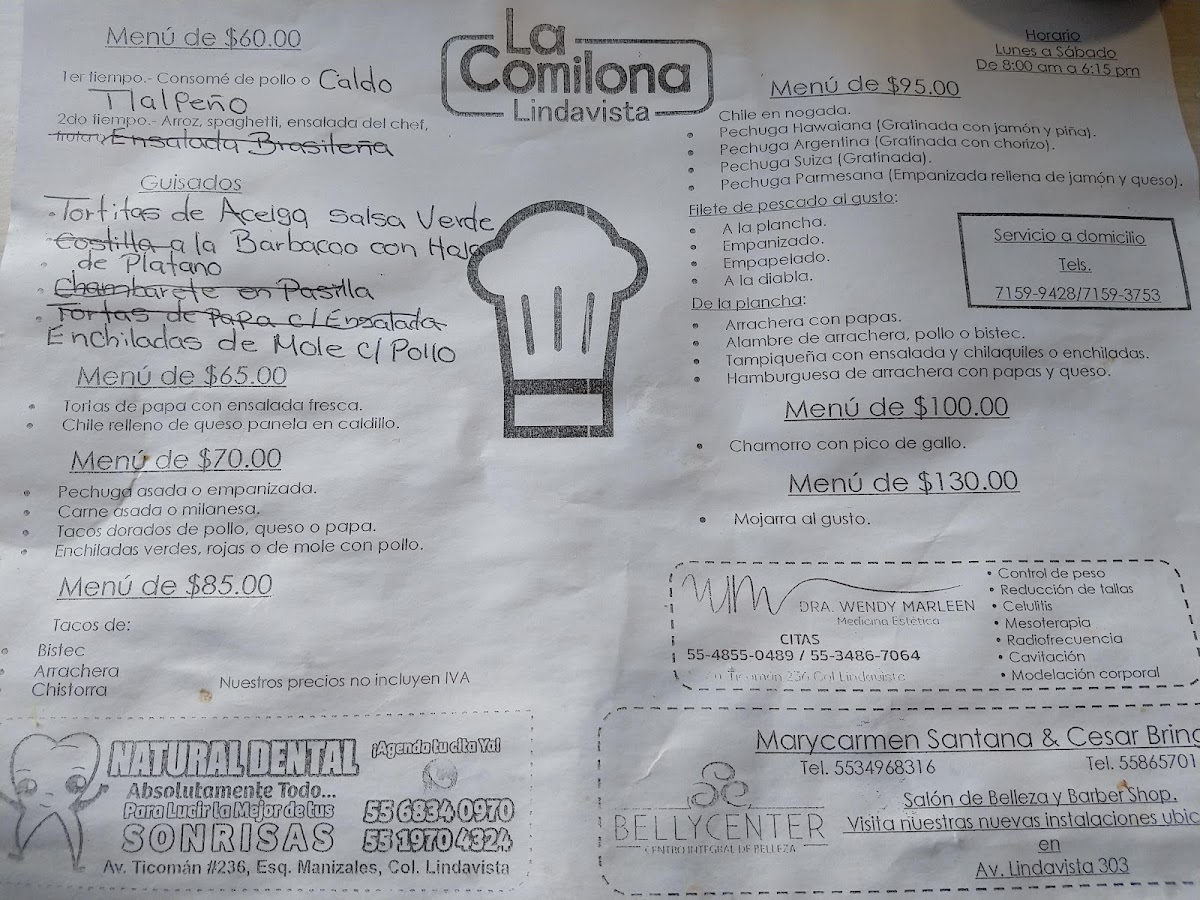 Menú de $60.00
1er tiempo.- Consomé de pollo o Caldo
Tlalpeño
2do tiempo.- Arroz, spaghetti, ensalada del chef,
Ensalada Brasileña
Guisados
Tortitas de Acelga salsa Verde
Costilla a la Barbacoa con Hoja
de Platano
Chambarete en Pasilla
Tortas de Papa c/Ensalada
Enchiladas de Mole c/Pollo
Menú de $65.00
• Tortas de papa con ensalada fresca.
• Chile relleno de queso panela en caldillo.
Menú de $70.00
• Pechuga asada o empanizada.
• Carne asada o milanesa.
• Tacos dorados de pollo, queso o papa.
• Enchiladas verdes, rojas o de mole con pollo.
Menú de $85.00
Tacos de:
• Bistec
• Arrachera
• Chistorra
Nuestros precios no incluyen IVA
La
Comilona
Lindavista
Horario
Lunes a Sábado
De 8:00 am a 6:15 pm
Menú de $95.00
• Chile en nogada.
• Pechuga Hawaiana (Gratinada con jamón y piña).
• Pechuga Argentina (Gratinada con chorizo).
• Pechuga Suiza (Gratinada).
• Pechuga Parmesana (Empanizada rellena de jamón y queso).
Filete de pescado al gusto:
• A la plancha.
• Empanizado.
• Empapelado.
• A la diabla.
Servicio a domicilio
Tels.
7159-9428/7159-3753
De la plancha:
• Arrachera con papas.
• Alambre de arrachera, pollo o bistec.
• Tampiqueña con ensalada y chilaquiles o enchiladas.
• Hamburguesa de arrachera con papas y queso.
Menú de $100.00
• Chamorro con pico de gallo.
Menú de $130.00
• Mojarra al gusto.
DRA. WENDY MARLEEN
Medicina Estética
CITAS
55-4855-0489 / 55-3486-7064
Ticomán 236 Col Lindavista
• Control de peso
• Reducción de tallas
• Celulitis
• Mesoterapia
• Radiofrecuencia
• Cavitación
• Modelación corporal
NATURAL DENTAL
¡Agenda tu cita Ya!
Absolutamente Todo...
Para Lucir la Mejor de tus
SONRISAS
55 6834 0970
55 1970 4324
Av. Ticomán #236, Esq. Manizales, Col. Lindavista
Marycarmen Santana & Cesar Bring
Tel. 5534968316
Tel. 55865701
BELLYCENTER
CENTRO INTEGRAL DE BELLEZA
Salón de Belleza y Barber Shop.
Visita nuestras nuevas instalaciones ubic
en
Av. Lindavista 303